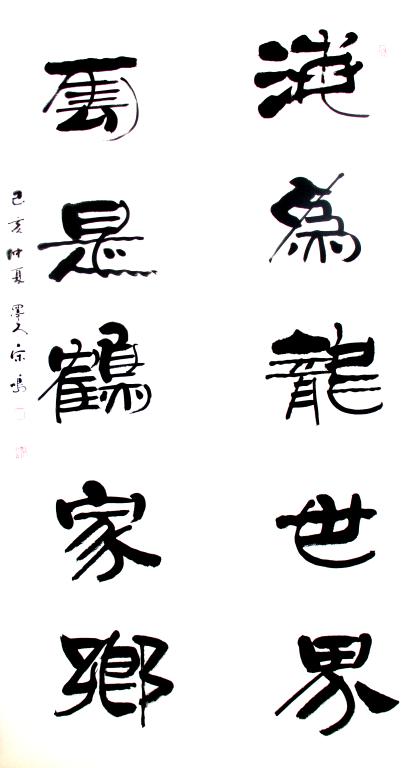 海為龍世界
雲是鶴家鄉
己亥仲夏 宗鳴